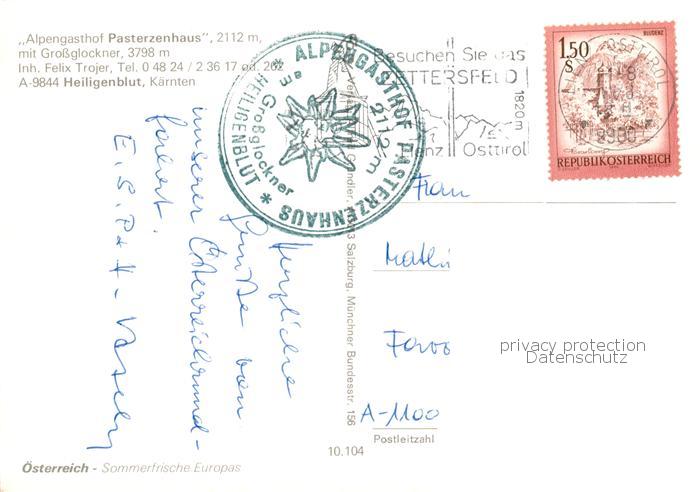 „Alpengasthof Pasterzenhaus", 2112 m,
mit Großglockner, 3798 m
Inh. Felix Trojer, Tel. 0 48 24 / 2 36 17 od. 262
A-9844 Heiligenblut, Kärnten
ALPENGASTHOF PASTERZENHAUS
2112/m
am Großglockner
* HEILIGENBLUT *
Besuchen Sie das
ZETTERSFELD
1820 m
Lienz Osttirol
LIENZ, OSTTIROL
9900
1.50
S
BLUDENZ
REPUBLIK ÖSTERREICH
Herzliche
Grüße von
unserer Österreichrund-
fahrt.
Frau
A-1100
Postleitzahl
Salzburg, Münchner Bundesstr. 156
10.104
Österreich - Sommerfrische Europas
privacy protection
Datenschutz